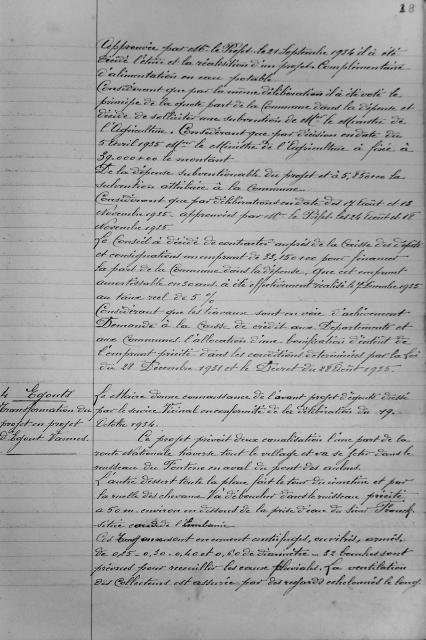 18
Approuvée par Mr. le Préfet le 21 Septembre 1934 il a été
décidé l'étude et la réalisation d'un projet Complémentaire
d'alimentation en eau potable
Considérant que par la même délibération il a été voté le
principe de la quote part de la Commune dans la dépense et
décidé de solliciter une subvention de Mr. le Ministre de
l'Agriculture. Considérant que par décision en date du
5 Avril 1935 Mr. le Ministre de l'Agriculture a fixé à
39.000 le montant
De la dépense subventionnable du projet et à 5,850 la
subvention attribuée à la Commune
Considérant que par délibérations en date des 17 Août et 18
Novembre 1935 approuvées par Mr. le Préfet les 24 Août et
Novembre 1935
Le Conseil a décidé de contracter auprès de la Caisse des Dépôts
et consignations un emprunt de 33,150 pour financer
la part de la Commune dans la dépense. Que cet emprunt
amortissable en 30 ans, a été effectivement réalisé le Décembre 1935
au taux réel de 5 %
Considérant que les travaux sont en voie d'achèvement
Demande à la Caisse de crédit aux Départements et
aux Communes l'allocation d'une bonification d'intérêt de
l'emprunt précité dans les conditions déterminées par la Loi
du 28 Décembre 1931 et le Décret du 28 Août 1935.
4 Egouts
Transformation du
projet en projet
d'Egout Vannes
Le Maire donne connaissance de l'avant projet d'égouts dressé
par le service Vicinal en conformité de la délibération du 19
Octobre 1934.
Ce projet prévoit deux canalisations l'une part de la
route Nationale traverse tout le village et va se jeter dans le
ruisseau du en aval du pont des
L'autre dessert toute la place fait le tour du cimetière et par
la ruelle des chevaux va déboucher dans le ruisseau précité
à 50 m. environ en dessous de la prise d'eau du Sieur
située
Ces sont en ciment centrifugés, ou vibrés, armés
de 0,25 - 0,30 - 0,40 et 0,60 de diamètre - 22 bouches sont
prévues pour recueillir les eaux pluviales. La ventilation
des Collecteurs est assurée par des regards échelonnés le long